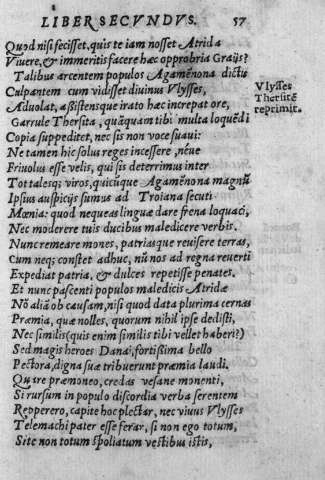 LIBER SECVNDVS. 57
Quod nisi fecisset, quis te iam nosset Atrida
Viuere, & immeritis facere hæc opprobria Graijs?
Talibus arcentem populos Agamēnona dictis
Culpantem cum vidisset diuinus Vlysses,
Aduolat, assistensque irato hæc increpat ore,
Vlysses
Thersitē
reprimit.
Garrule Thersita, quāquam tibi multa loquēdi
Copia suppeditet, nec sis non voce suaui:
Ne tamen hic solus reges incessere, néue
Friuolus esse velis, qui sis deterrimus inter
Tot tales; viros, quicūque Agamēnona magnū
Ipsius auspicijs sumus ad Troiana secuti
Mœnia: quod nequeas linguæ dare frena loquaci,
Nec moderere tuis ducibus maledicere verbis.
Nunc remeare mones, patriasque reuisere terras,
Cum neq; constet adhuc, nū nos ad regna reuerti
Expediat patria, & dulces repetisse penates.
Et nunc pascenti populos maledicis Atridæ
Nō aliā ob causam, nisi quod data plurima cernas
Præmia, quæ nolles, quorum nihil ipse dedisti,
Nec similis (quis enim similis tibi vellet haberi?)
Sed magis heroes Danai, fortissima bello
Pectora, digna suæ tribuerunt præmia laudi.
Quare præmoneo, credas vesane monenti,
Si rursum in populo discordia verba serentem
Reperero, capite hoc plectar, nec viuus Vlysses
Telemachi pater esse ferar, si non ego totum,
Si te non totum spoliatum vestibus istis,